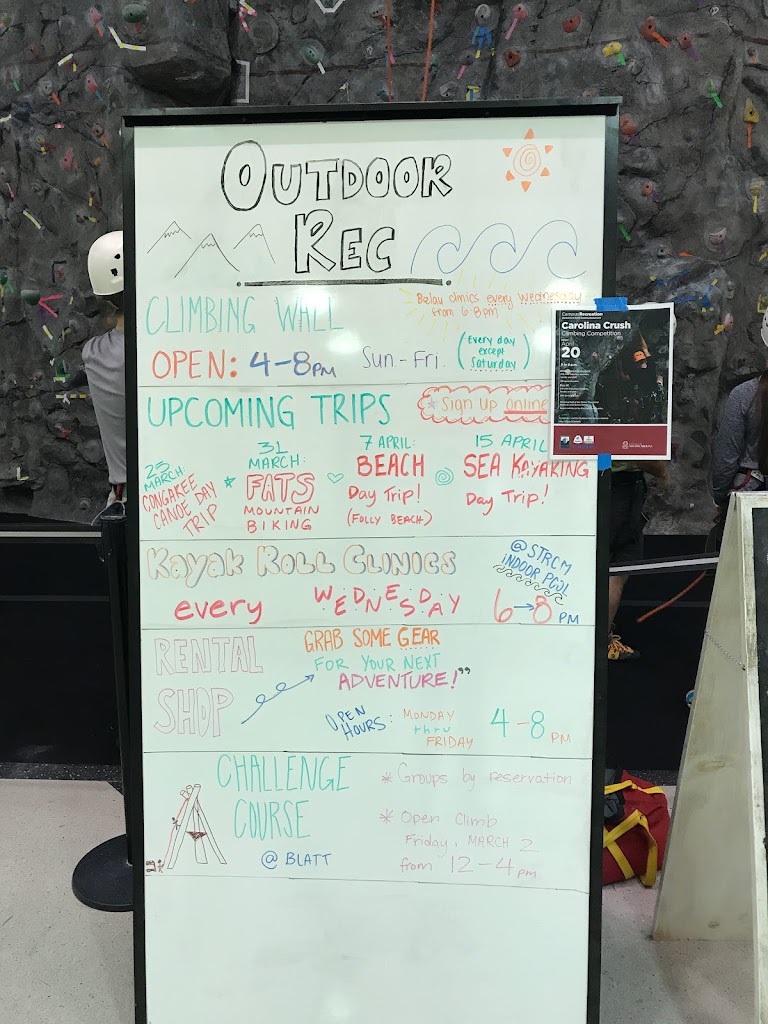 OUTDOOR
REC
CLIMBING WALL
Belay clinics every Wednesday
from 6-8pm
OPEN: 4-8PM Sun-Fri.
(Every day
except
Saturday)
CampusRecreation
Carolina Crush
Climbing Competition
April
20
UPCOMING TRIPS
* Sign Up online
23
MARCH:
CONGAREE
CANOE DAY
TRIP
31
MARCH:
FATS
MOUNTAIN
BIKING
7 APRIL:
BEACH
Day Trip!
(FOLLY BEACH)
15 APRIL
SEA KAYAKING
Day Trip!
Kayak Roll Clinics
@STRCM
INDOOR POOL
every WEDNESDAY 6→8 PM
RENTAL
SHOP
GRAB SOME GEAR
FOR YOUR NEXT
ADVENTURE!"
OPEN
HOURS:
MONDAY
thru
FRIDAY
4-8 PM
CHALLENGE
COURSE
@ BLATT
* Groups by reservation
* Open Climb
Friday, MARCH 2
from 12-4pm